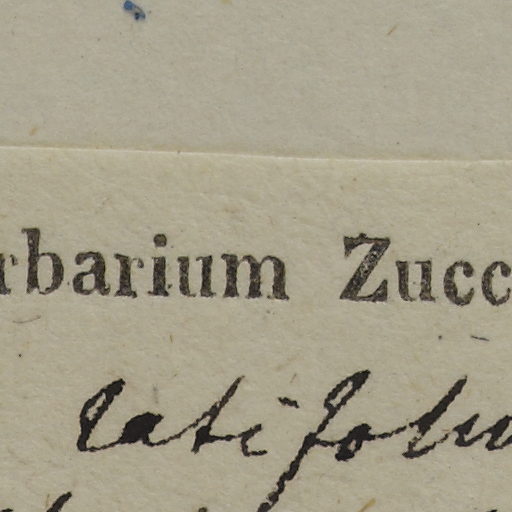 rbarium Zucc
latifoliu